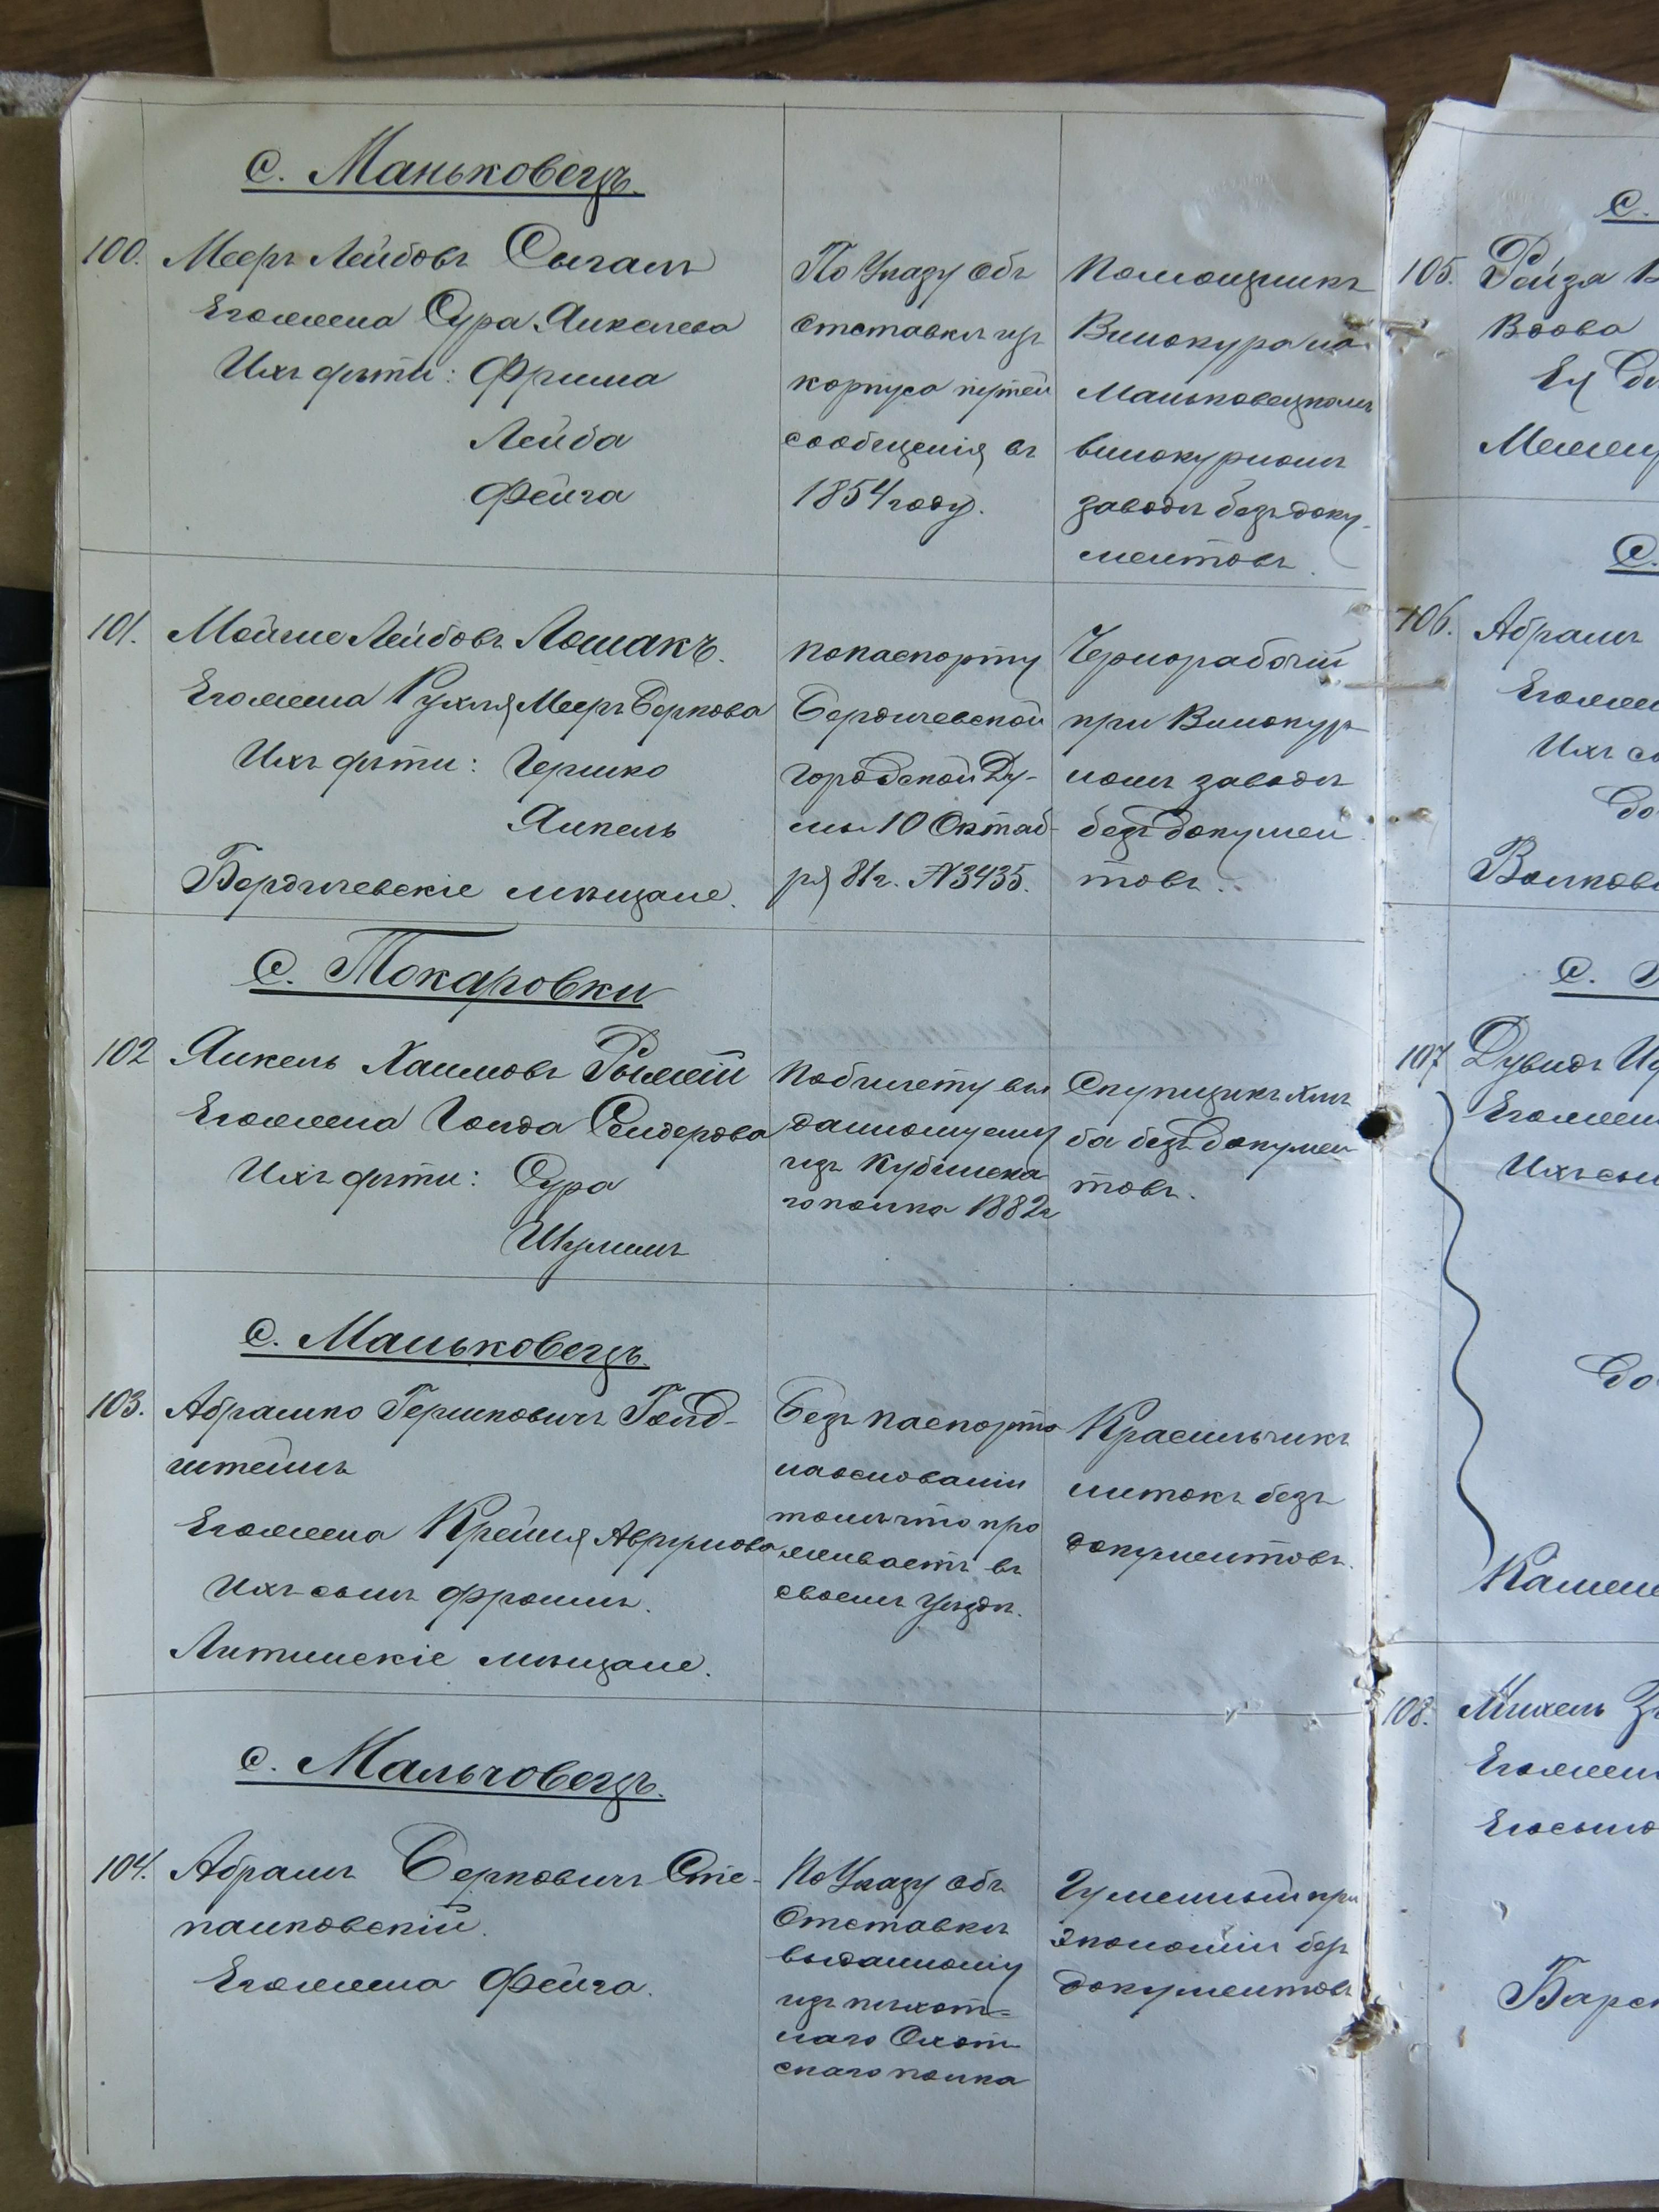 с. Маньковецъ.
100. Мееръ Лейбовъ Сыгалъ
Его жена Сура Янкелева
Ихъ дѣти: Фрима
Лейба
Фейга
По Указу объ
отставки изъ
корпуса путей
сообщенія въ
1854 году.
Помощникъ
Винокура на
Маньковецкомъ
винокурномъ
заводѣ безъ доку-
ментовъ.
101. Мойше Лейбовъ Лошакъ.
Его жена Рухля Мееръ Беркова
Ихъ дѣти: Гершко
Янкель
Бердичевскіе мѣщане.
по паспорту
Бердичевской
городской Ду-
мы 10 Октяб-
ря 81 г. №3435.
Чернорабочій
при Винокур-
номъ заводѣ
безъ докумен
товъ.
с. Токаровки
102 Янкель Хаимовъ Рыжій
Его жена Голда Сендерова
Ихъ дѣти: Сура
Шулимъ
По билету вы
данному ему
изъ Кубинска
го полка 1882 г
Скупщикъ хлѣ
ба безъ докумен
товъ.
с. Маньковецъ.
103. Абрашко Гершковичъ Голд-
штейнъ
Его жена Крейня Аврумова
Ихъ сынъ Фроимъ.
Литинскіе мѣщане.
Безъ паспорта
на основаніи
томъ что про
живаетъ въ
своемъ уѣздѣ.
Красильчикъ
нитокъ безъ
документовъ.
с. Мальчовецъ.
104. Абрамъ Берковичъ Сте-
панковскій.
Его жена Фейга.
По Указу объ
Отставкѣ
выданному
изъ пѣхот=
наго Охот
скаго полка
Гуменный при
экономіи безъ
документовъ
с.
105. Рейза
Вдова
Ея
с.
106. Абрамъ
Его жен
Ихъ
с.
107 Дувидъ
Его жен
Ихъ сын
Камене
108. Михель
Его жен
Барск